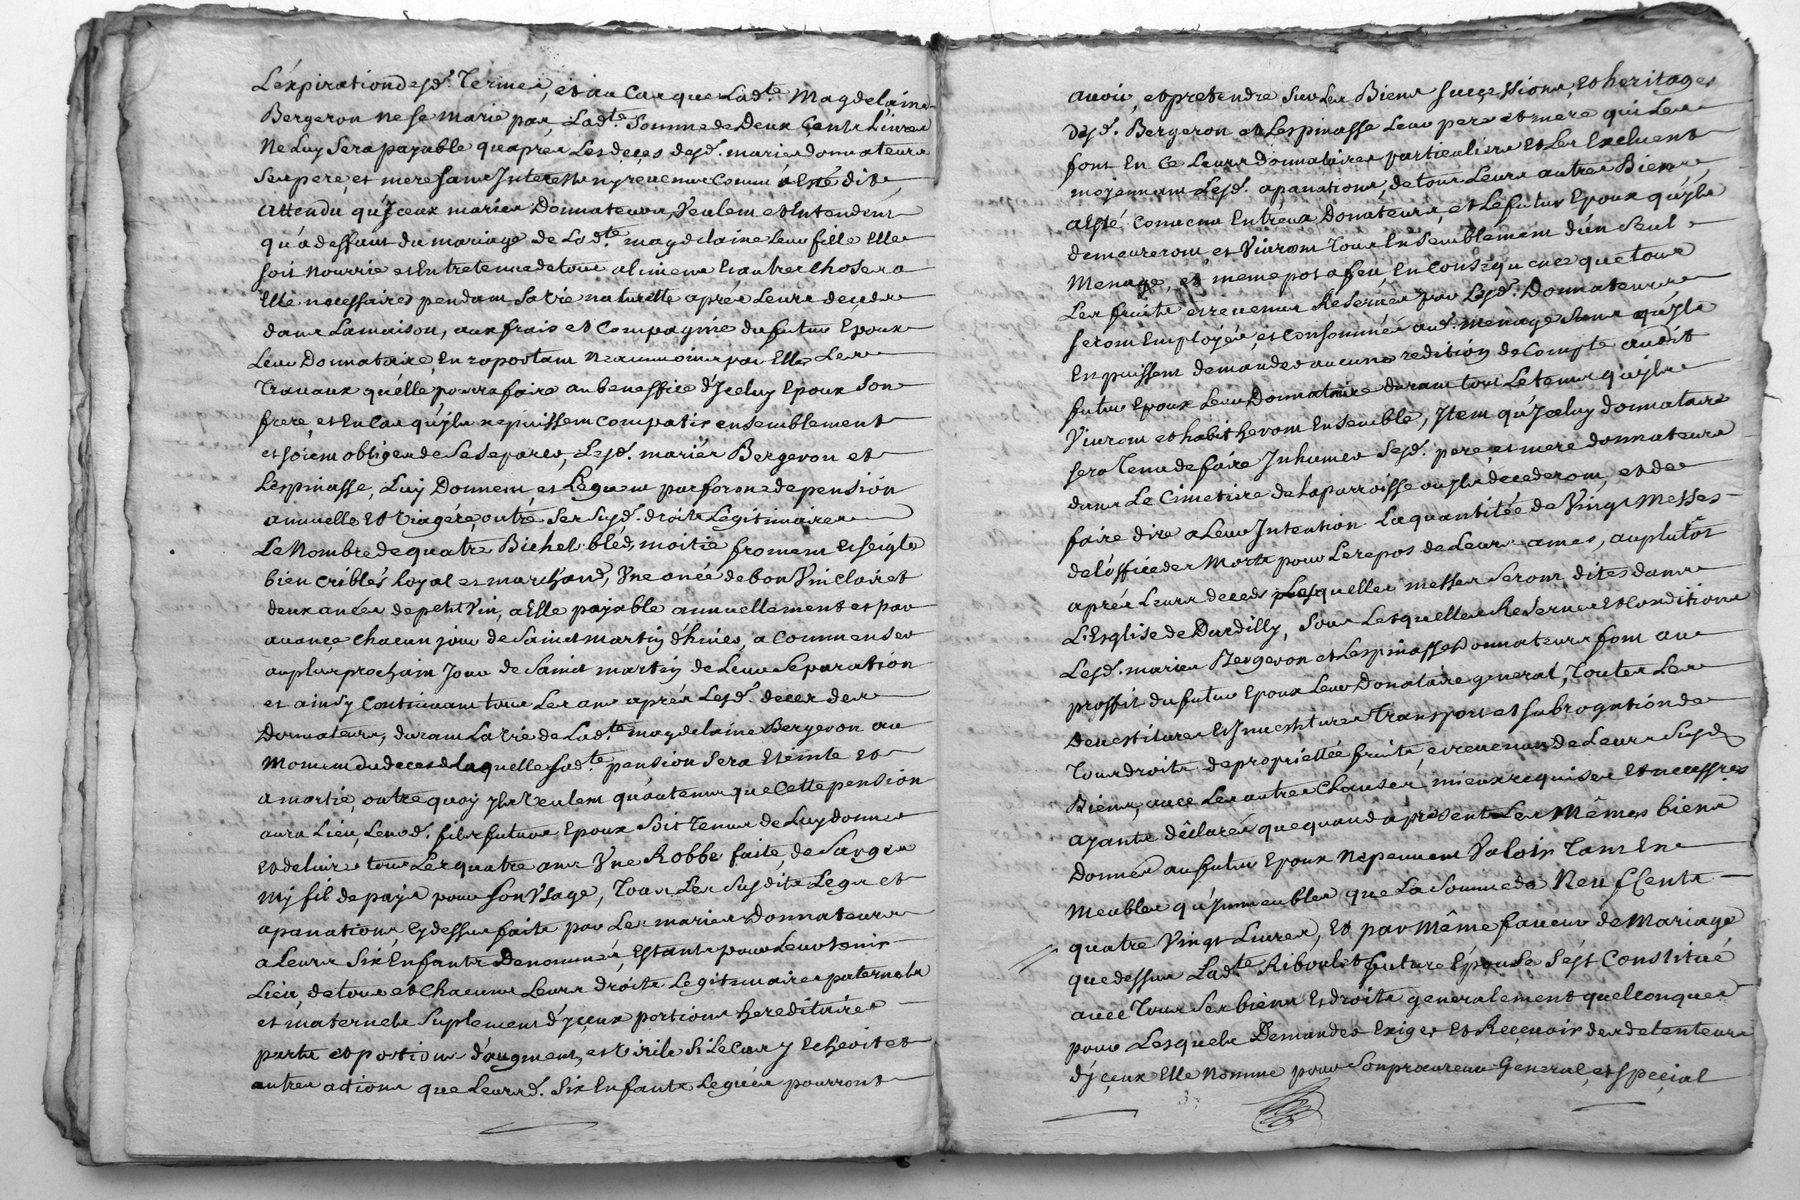 L'éxpiration desd. Termes, et au Cas que Lad.te Magdelaine
Bergeron ne se marie pas, Lad.te Somme de Deux Cents Livres
Ne Luy Sera payable qu'apres Les deçes desd. maries donnateurs
Ses pere, et mere sans Interests ny revenus comme a Esté dit,
Attendu qu'Jceux maries Donnateurs, Veulent et Entendent
qu'a deffaut du mariage de Lad.te magdelaine Leur fille Elle
soit nourrie et Entretenue de tous aliments Et autres Choses a
Elle necessaires pendant sa vie naturelle aprés Leurs deceds
dans La maison, aux frais et Compagnie du futur Epoux
Leur Donnataire, En raportant neanmoins par Elle Les
Travaux qu'elle pourra faire au beneffice d'Jceluy Epoux son
frere, et En Cas qu'yls ne puissent compatir ensemblement
et soient obligés de Se Separer, Lesd. mariés Bergeron et
Lespinasse, Luy Donnent, et Leguent par forme de pension
annuelle Et viagére, outre Ses Susd. droits Legitimaires
Le Nombre de quatre Bichets bled, moitié froment Et seigle
bien criblés loyal et marchand, Vne anée de bon Vin clair et
deux anées de petit vin, a Elle payable annuellement et par
avançe chacun jour de Sainct martin d'hiver, a Commenser
au plus prochain Jour de Sainct martin de Leur Separation
et ainsy Continuant tous Les ans aprés Lesd. deces des
Donnateurs, durant La vie de Lad.te magdelaine Bergeron au
Moment du deces de laquelle Lad.te pension Sera Eteinte et
amortie, outre quoy yls veulent qu'autemps que Cette pension
aura Lieu, Leurd. fils futur Epoux Soit Tenu de Luy donner
Et delivrer tous Les quatre ans Vne Robbe faite, de Sarge
my fil de pays pour son Vsage, Tous Les Susdits Legs et
apanations, Cy dessus faits par Les maries Donnateurs
a Leurs Six Enfants Denommés, Estants pour Leur tenir
Lieu, de tous et Chacuns Leurs droits Legitimaires paternels
et maternels Suplement d'yceux portions hereditaires
parts et portions d'augment, et virile Si Le Cas y Echeoit et
autres actions que Leursd. Six Enfants Legués pourront
avoir, et pretendre Sur Les Biens Successions, Et heritages
desd. Bergeron et Lespinasse Leur pere et mere qui Les
font En Ce Leurs donnataires particuliers Et Les Excluent
moyennant Lesd. apanations de tous Leurs autres Biens,
a Esté Convenu Entre eux Donateurs, et Le futur Epoux qu'yls
demeureront et Vivront Tous Ensemblement d'un Seul
Menage, et meme pot a feu, En Consequence que tous
Les fruits et revenus Reservés par Lesd. Donnateurs
seront Employés, et Consommés aud. menage Sans qu'yls
En puissent demander aucune redition de Compte audit
futur Epoux Leur Donnataire durant tout Le temps qu'yls
Vivront et habitteront Ensemble, Jtem qu'Jceluy donnataire
sera Tenu de faire Jnhumer Sesd. pere, et mere donnateurs
dans Le Cimetiere de la parroisse ou yls decederont, et de
faire dire a Leur Intention La quantitée de Vingt Messes
de l'office des Morts pour Le repos de Leurs ames, au plutôt
aprés Leurs deceds Lesquelles messes Seront dites dans
L'Esglise de Dardilly, Sous Lesquelles Reserves Et Conditions
Lesd. maries Bergeron et Lespinasse Donnateurs font au
proffit du futur Epoux Leur Donataire general, Toutes Les
Devestitures Et Jnvestitures Transport et Subrogation de
Tous droits de proprietée fruits, et revenus de Leurs Susd.
Biens, avec Les autres Clauses, mieux requises Et necessres
ayants déclarés que quand a present Les Mêmes biens
Donnés au futur Epoux Ne peuvent Valoir Tant En
Meubles qu'Jmmeubles que La Somme de Neuf Cents
quatre Vingt Livres, Et par Même faveur de Mariage
que dessus Lad.te Riboulet future Epouse S'est Constitué
avec Tous Ses biens Et droits generalement quelconques
pour Lesquels Demander Exiger Et Reçevoir des detenteurs
d'yçeux Elle Nomme pour Son procureur General, et speçial